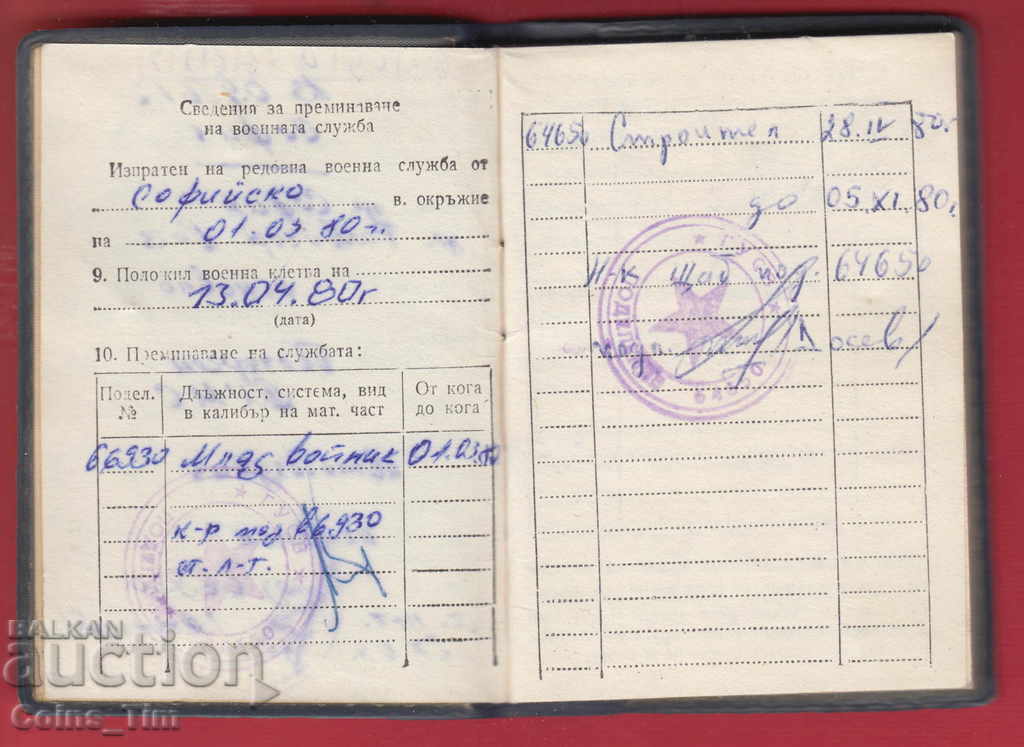 Сведения за преминаване
на военната служба
Изпратен на редовна военна служба от
Софийско в. окръжие
на 01.03.80 г.
9. Положил военна клетва на
13.04.80 г
(дата)
10. Преминаване на службата:
Подел. №
Длъжност, система, вид в калибър на мат. част
От кога до кога
66930 Млад войник 01.03.80
к-р под 66930
ст. л-т.
64656 Строител 28.IV 80 г.
до 05.XI.80 г.
Н-к Щаб под. 64656
BALKAN
auction
Coins_Tim